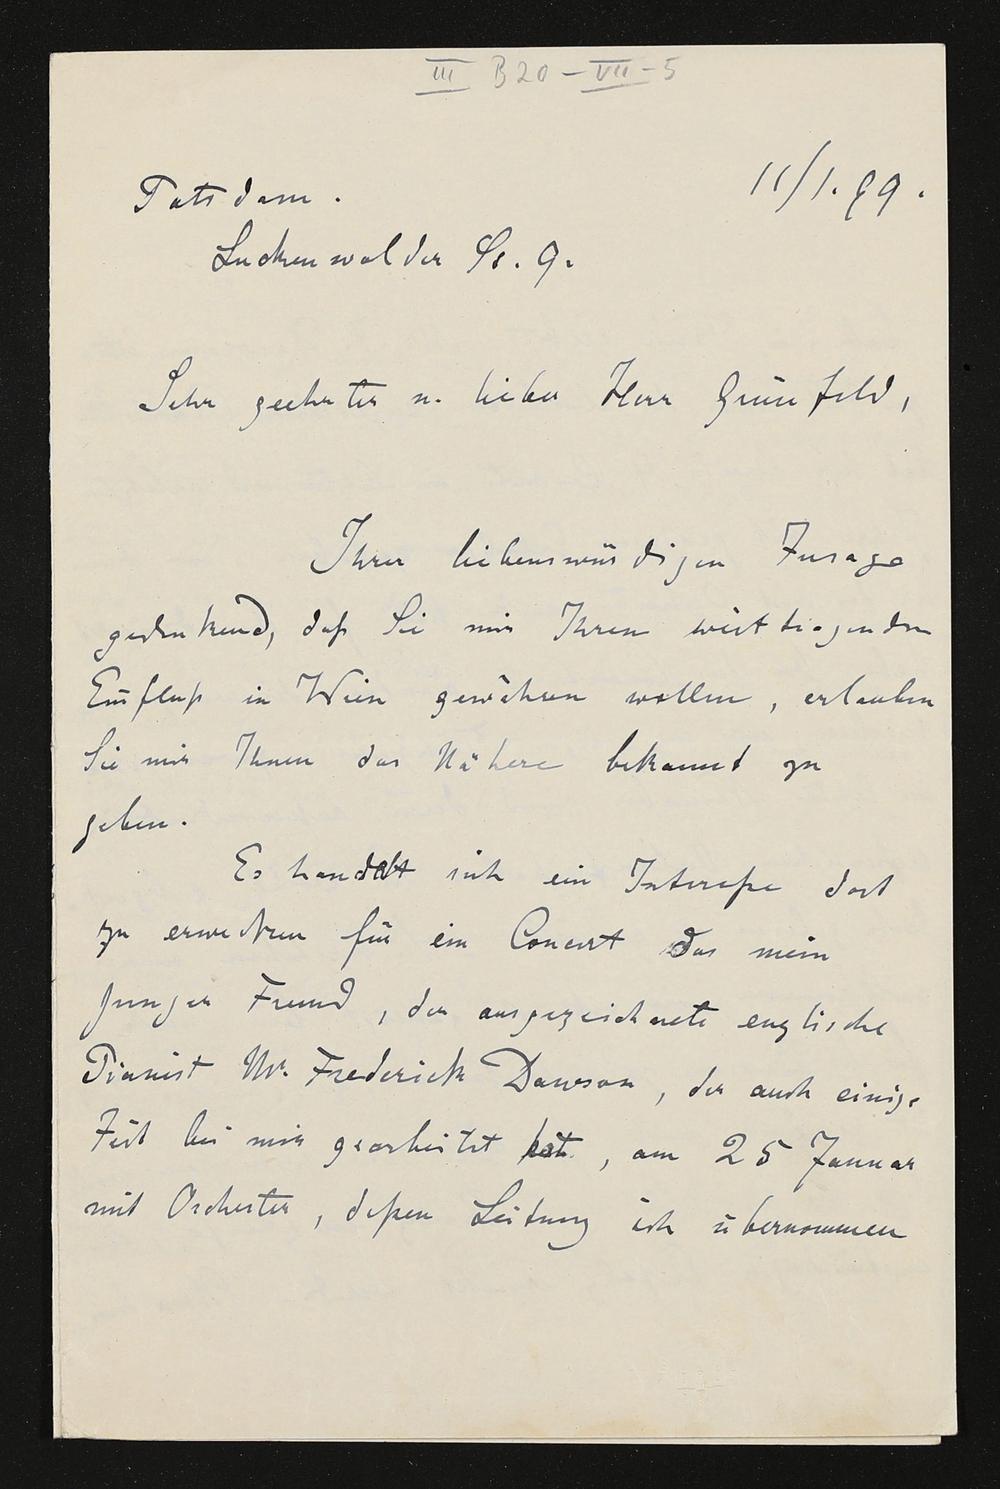 III B20-VII-5
11/1.99.
Potsdam.
Luckenwalder St. 9.
Sehr geehrter u. lieber Herr Grünfeld,
Ihrer liebenswürdigen Zusage
gedenkend, daß Sie mir Ihren weittragenden
Einfluß in Wien gewähren wollen, erlauben
Sie mir Ihnen das Nähere bekannt zu
geben.
Es handelt sich ein Interesse dort
zu erwecken für ein Concert das mein
junger Freund, der ausgezeichnete englische
Pianist Mr. Frederick Dawson, der auch einige
Zeit bei mir gearbeitet hat, am 25 Januar
mit Orchester, deßen Leitung ich übernommen